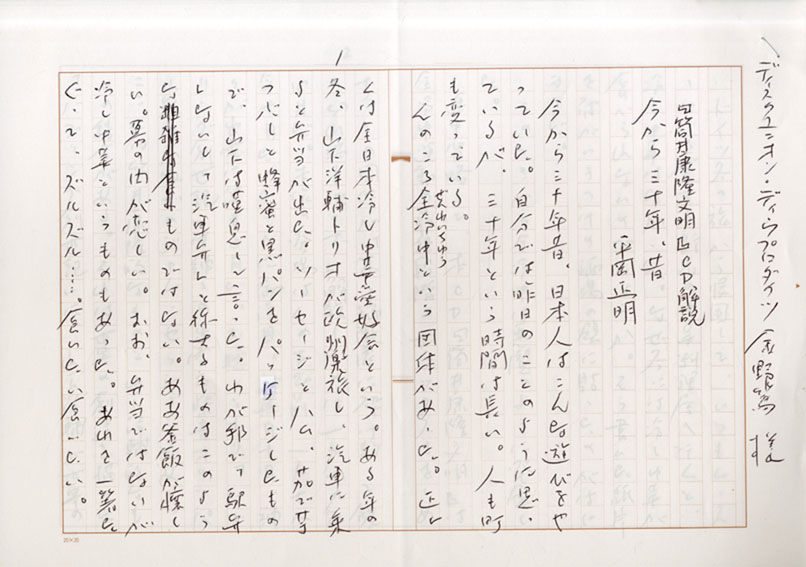 ディスクユニオン・ディウプロダクツ 金野篤 様
筒井康隆文明 CD解説
今から三十年、昔
平岡正明
今から三十年昔、日本人はこんな遊びをや
っていた。自分では昨日のことのように思っ
ているが、三十年という時間は長い。人も町
も変っている。
そのころ全冷中という団体があった。正し
1
くは全日本冷し中華愛好会という。ある年の
冬、山下洋輔トリオが欧州楽旅し、汽車に乗
ると弁当が出た。ソーセージとハム、茹で芋
つぶしと蜂蜜と黒パンをパッケージしたもの
で、山下は嘆息して言った。わが邦で駅弁
ないし汽車弁と称するものはこのよう
なものではない。ああ釜飯が懐し
い。幕の内が恋しい。おお、弁当ではないが
冷し中華というものもあった。あれを一箸た
ぐって、ズルズル……。食いたい食いたい。
20×20